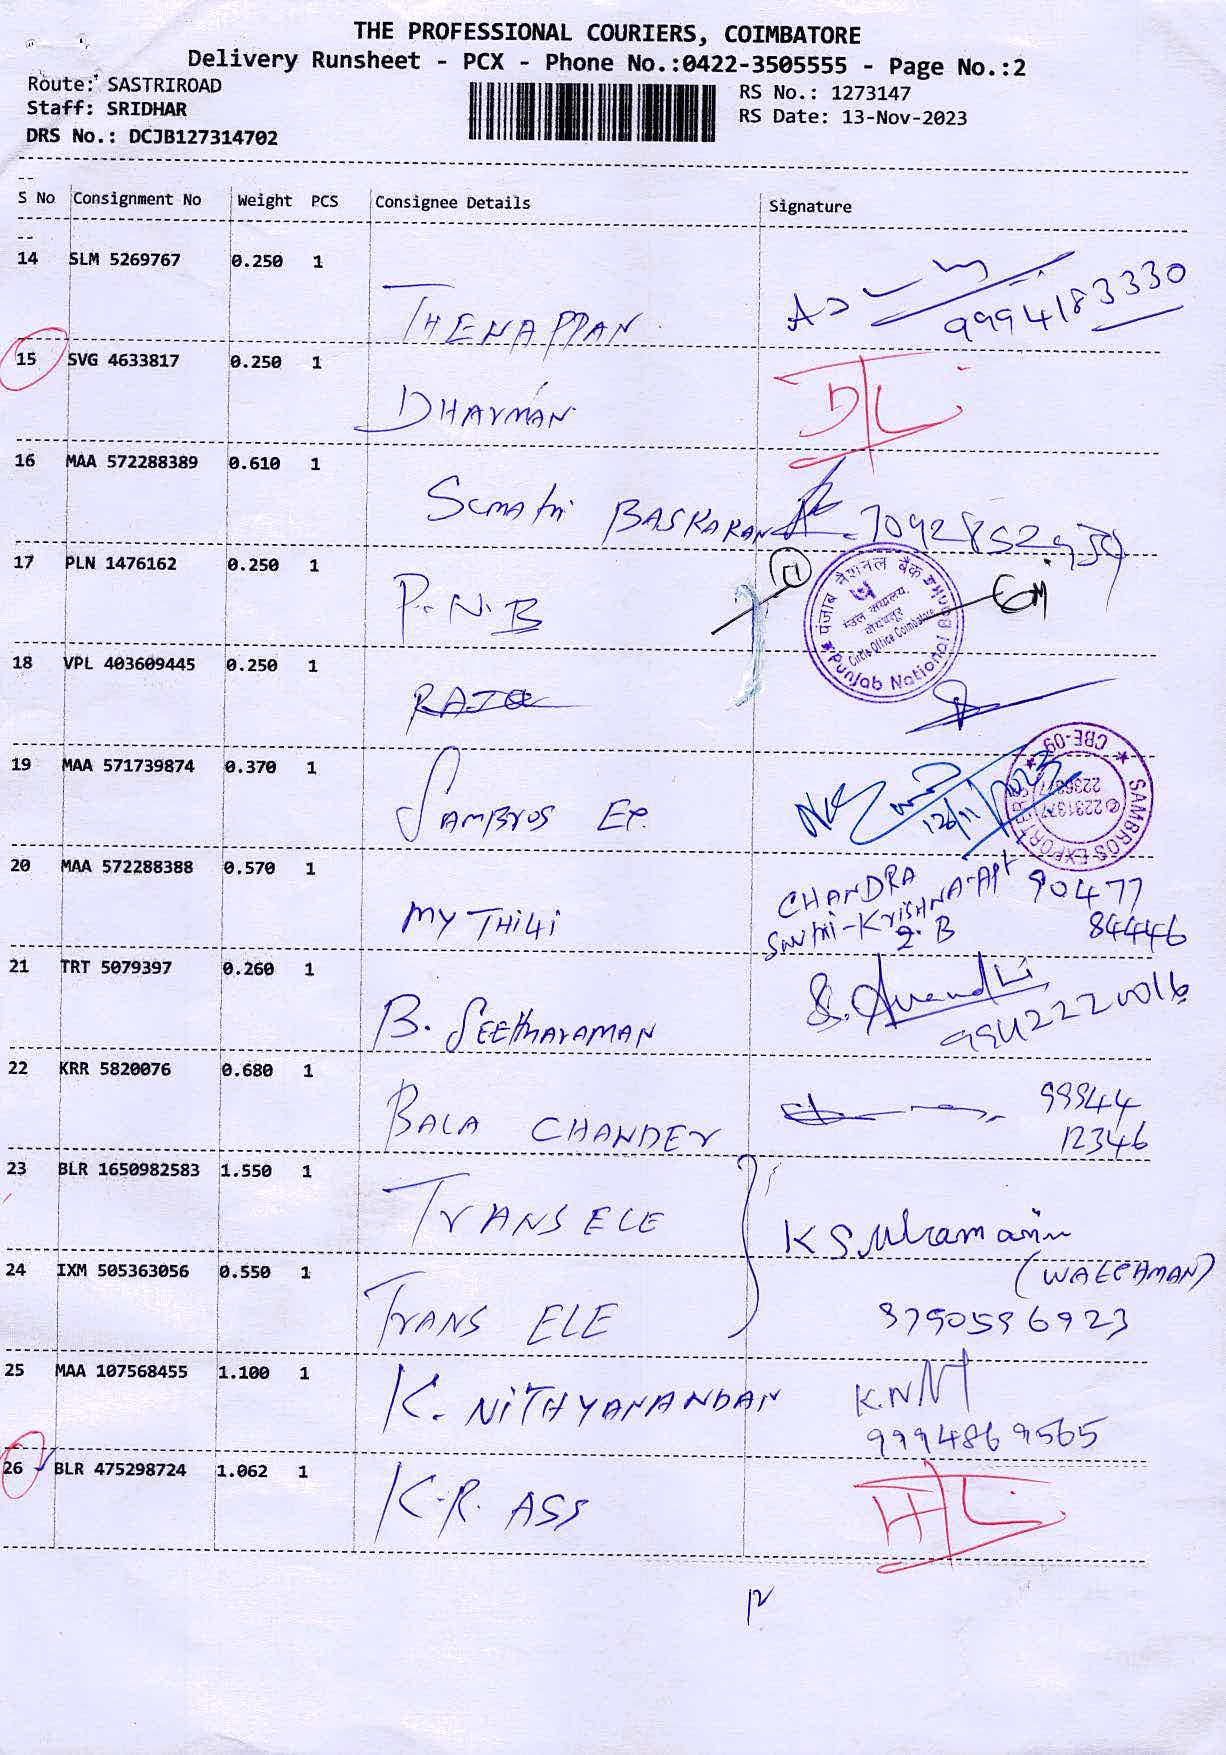 THE PROFESSIONAL COURIERS, COIMBATORE
Delivery Runsheet - PCX - Phone No.:0422-3505555 - Page No.:2
Route: SASTRIROAD
Staff: SRIDHAR
DRS No.: DCJB127314702
RS No.: 1273147
RS Date: 13-Nov-2023
S No Consignment No Weight PCS Consignee Details Signature
14 SLM 5269767 0.250 1
THENAPPAN
9994183330
15 SVG 4633817 0.250 1
DHARMAN
D/L
16 MAA 572288389 0.610 1
BASKARAN
17 PLN 1476162 0.250 1
P.N.B
पंजाब नैशनल बैंक
मंडल कार्यालय,
कोयम्बतूर
Circle Office Coimbatore
Punjab National Bank
18 VPL 403609445 0.250 1
19 MAA 571739874 0.370 1
SAMBROS EX.
SAMBROS EXPORTER
CBE-09
20 MAA 572288388 0.570 1
MYTHILI
CHANDRA
KRISHNA-APt
2.B
90477
84446
21 TRT 5079397 0.260 1
B. SEETHARAMAN
22 KRR 5820076 0.680 1
BALA CHANDER
99944
12346
23 BLR 1650982583 1.550 1
TRANS ELE
24 IXM 505363056 0.550 1
TRANS ELE
(WATCHMAN)
25 MAA 107568455 1.100 1
K. NITHYANANDAN
9994869565
26 BLR 475298724 1.062 1
K.R. ASS